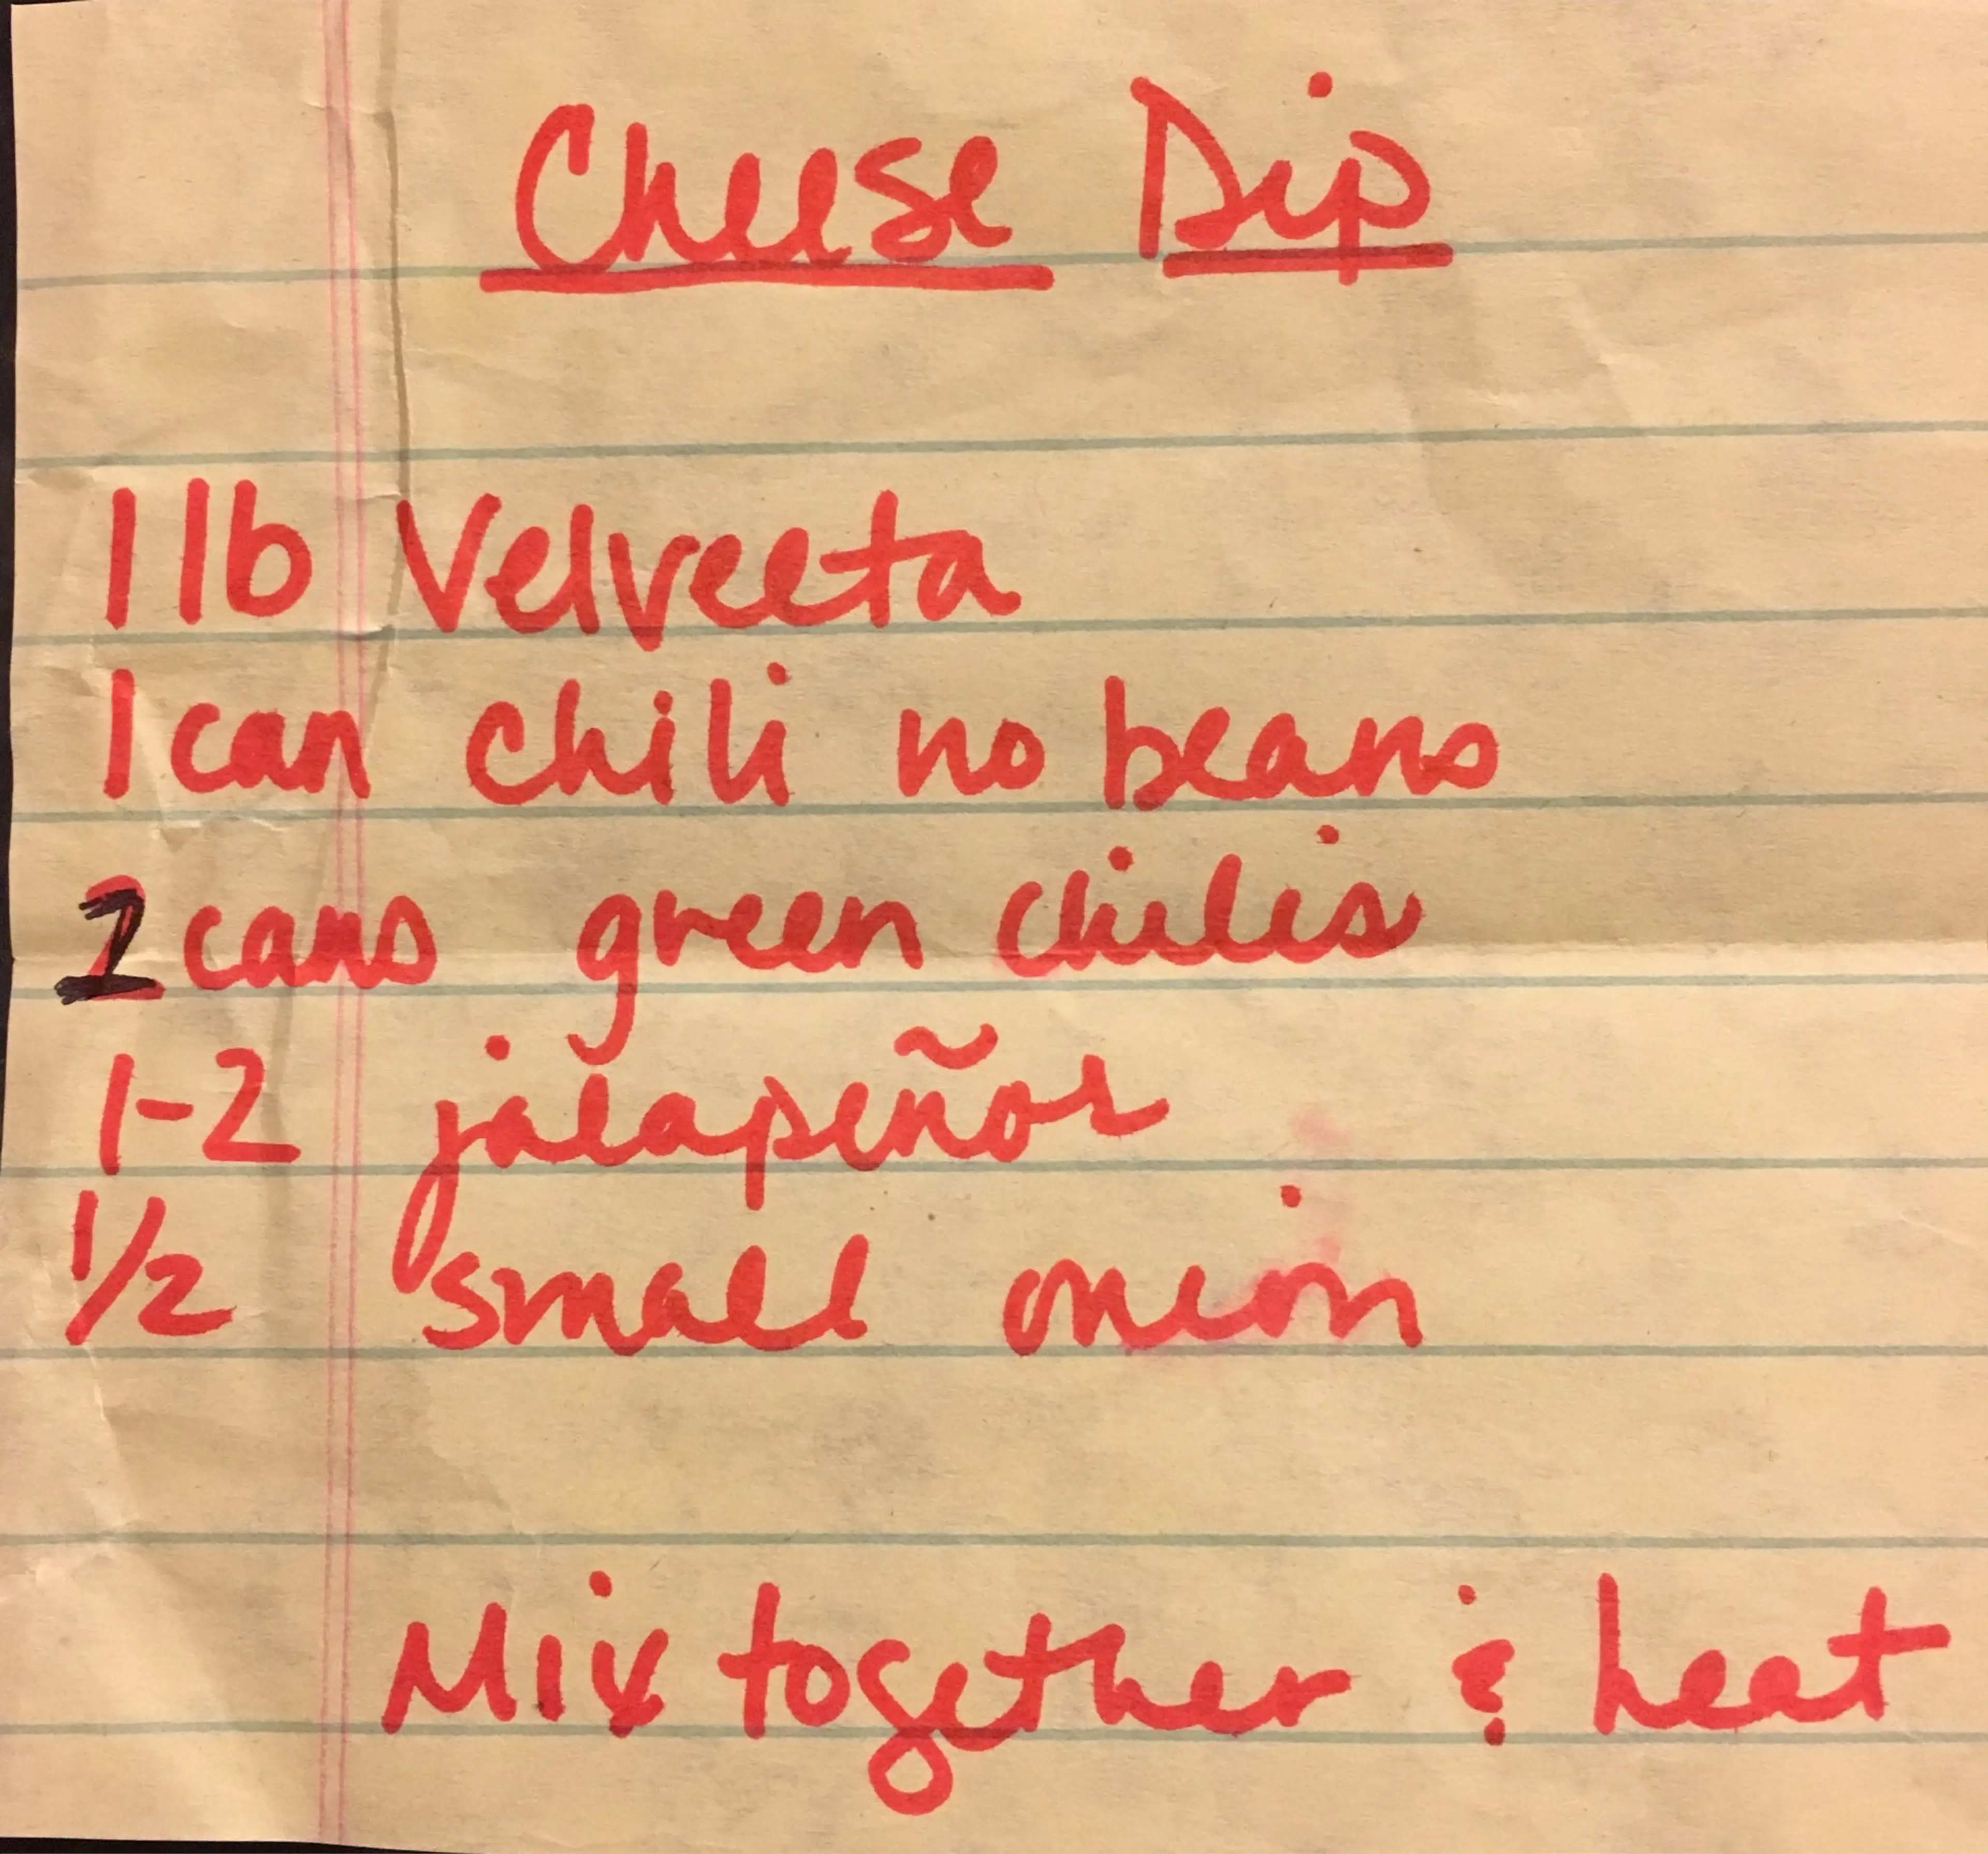 Cheese Dip
1 lb Velveeta
1 can chili no beans
cans green chilis
1-2 jalapeños
1/2 small onion
Mix together & heat